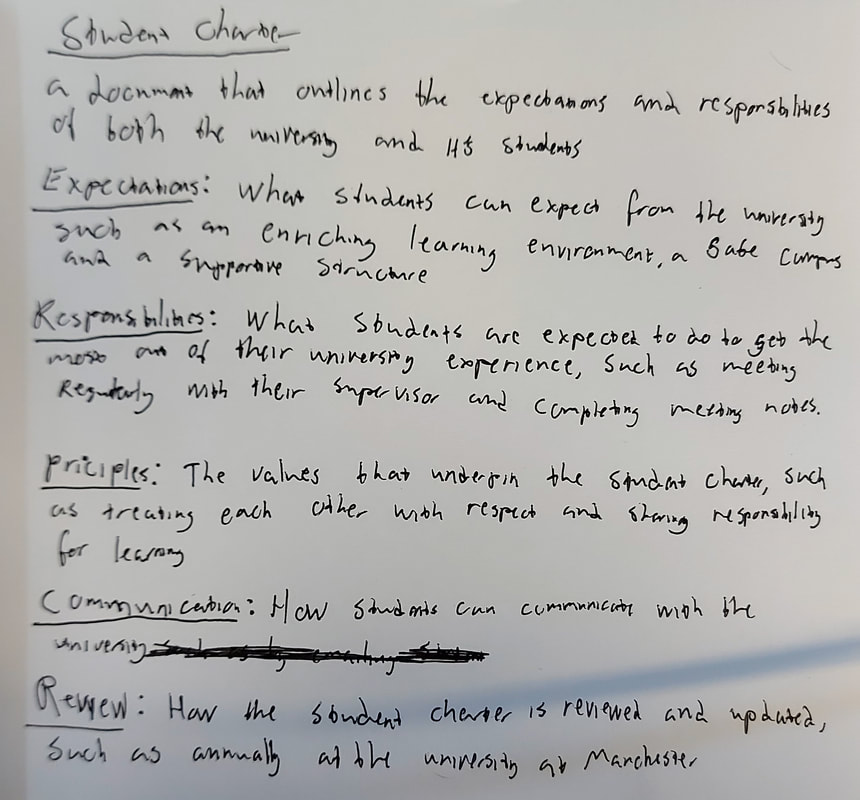 Student Charter
a document that outlines the expectations and responsibilities
of both the university and its students
Expectations: What students can expect from the university
such as an enriching learning environment, a safe campus
and a supportive structure
Responsibilities: What students are expected to do to get the
most out of their university experience, such as meeting
Regularly with their supervisor and completing meeting notes.
Priciples: The values that underpin the student charter, such
as treating each other with respect and sharing responsibility
for learning
Communication: How students can communicate with the
university
Review: How the student charter is reviewed and updated,
such as annually at the university at Manchester